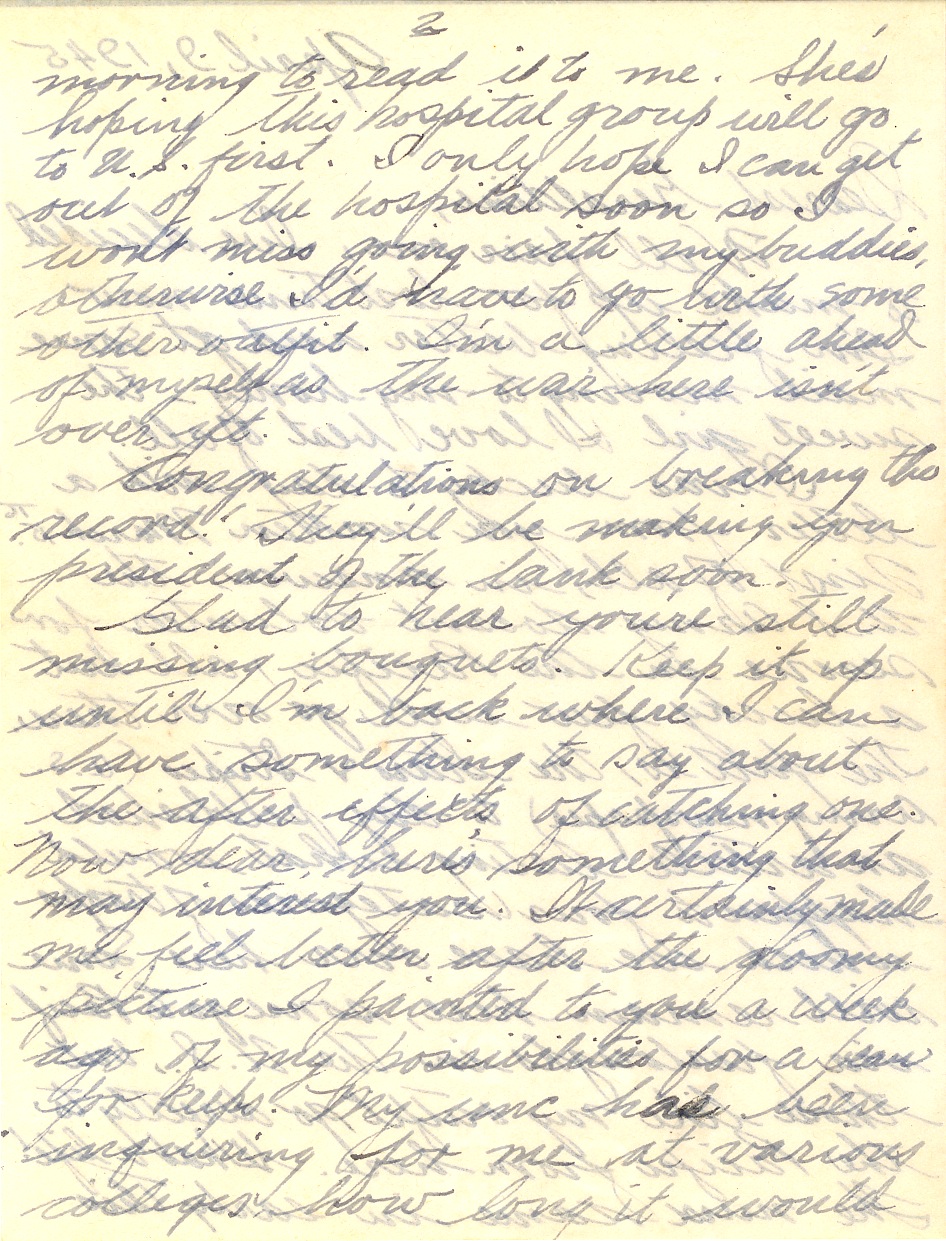 2
morning to read it to me. She's
hoping this hospital group will go
to U.S. first. I only hope I can get
out of the hospital soon so I
won't miss going with my buddies,
otherwise I'd have to go with some
other outfit. I'm a little ahead
of myself as the war here isn't
over yet.
Congratulations on breaking the
record. They'll be making you
president of the bank soon.
Glad to hear you're still
missing bouquets. Keep it up
until I'm back where I can
have something to say about
the after effects of catching one.
Now dear, here's something that
may interest you. It certainly made
me feel better after the gloomy
picture I painted to you a week
ago of my possibilities for a
for keeps. My unc has been
inquiring for me at various
colleges, how long it would